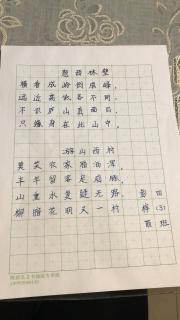 题西林壁
横看成岭侧成峰，
远近高低各不同。
不识庐山真面目，
只缘身在此山中。
游山西村
莫笑农家腊酒浑，
丰年留客足鸡豚。
山重水复疑无路
柳暗花明又一村
四(3)班